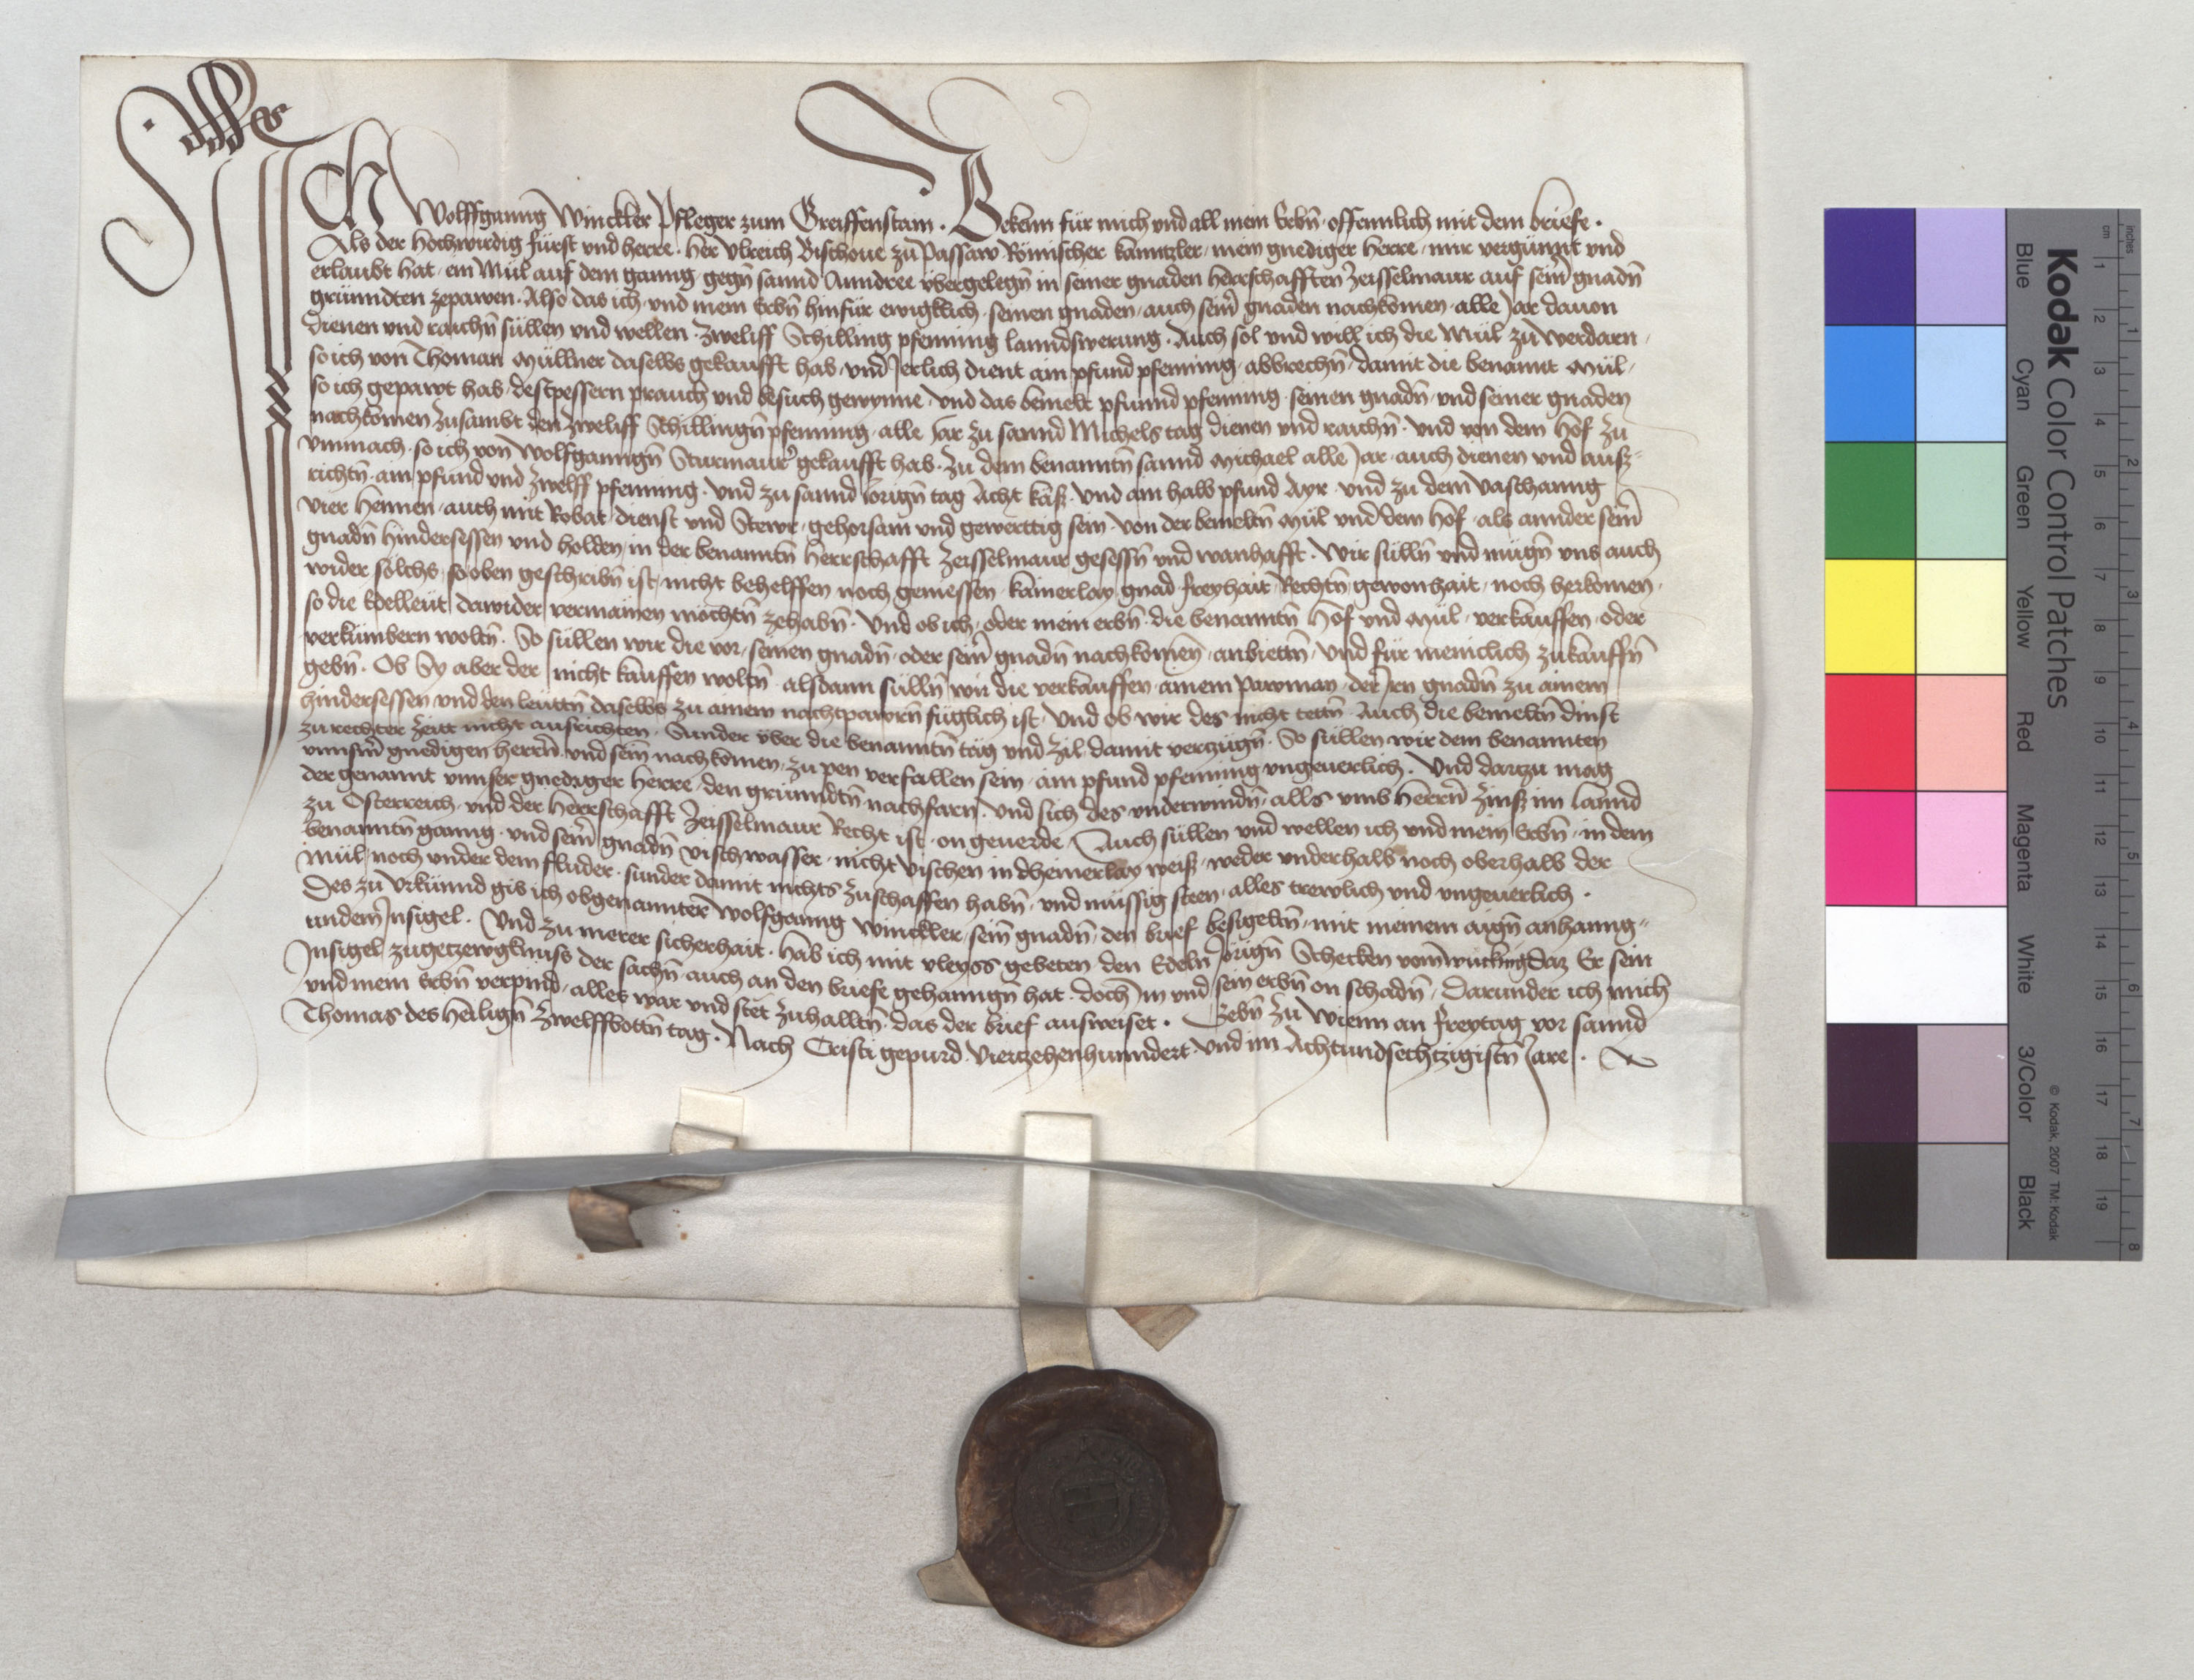 Ich Wolffganng Winckler Pfleger zum Greiffenstain. Bekenn für mich und all mein Erbn̄ offennlich mit dem briefe.
Als der Hochwirdig fürst vnd herre. Her Vlreich Bischoue zu Passaw Römischer kanntzler, mein gnediger Herre, mir vergünnt vnd
erlaubt hat, ein Mül auf dem ganng gegn̄ sannd Anndree vbergelegn̄ in seiner gnaden Herrschafften Zeisselmaur auf sein̄ gnadn̄
gründten zepawen. Also das ich vnd mein Erbn̄ hinfür ewigklich, seinen gnaden, auch sein̄ gnaden nachkomen, alle Jar dauon
dienen vnd raichn̄ süllen vnd wellen. Zweliff Schilling pfenning lanndswerung. Auch sol vnd will ich die Mül zu Werdarn,
so ich von Thoman Müllner daselbs gekaufft hab, vnd Jerlich dient ain pfund pfenning, abbrechn̄, damit die benannt Mül,
so ich gepawt hab, destpessern prauch vnd besuch gewynne, vnd das bemelt pfunnd pfenning, seinen gnadn̄, vnd seiner gnaden
nachkomen zusambt den Zweliff Schillingn̄ pfenning, alle Jar zu sannd Michels tag dienen vnd raichn̄. Vnd von dem Hof zu
so ich von Wolfganngn̄ Sturmaur gekaufft hab. Zu dem benanntn̄ sannd Michael alle Jar, auch dienen vnd ausz-
richtn̄, ain pfund vnd Zwelff pfenning. Vnd zu sannd Jörign̄ tag Acht käsz. Vnd ain halb pfund Ayr, vnd zu dem vaschanng
vier Hennen, auch mit Robat, dienst vnd Stewr, gehorsam vnd gewerttig sein. Von der bemeltn̄ Mül vnd dem Hof, als annder sein̄
gnadn̄ hindersessen vnd holden, in der benanntn̄ Herrschafft Zeisselmaur gesessn̄ vnd wanhafft. Wir sülln̄ vnd mügn̄ vns auch
wider solchs, so oben geschribn̄ ist, nicht behelffen noch geniessen, kainerlay gnad, freyhait, Rechtn̄, gewonhait, noch herkomen,
so die Edelleüt dawider vermainen möchtn̄ zehabn̄. Vnd ob ich, oder mein erbn̄, die benanntn̄ Hof vnd Mül, verkauffen, oder
verkümbern woltn̄. So süllen wir die vor, seinen gnadn̄, oder sein̄ gnadn̄ nachkomen, anbiettn̄, vnd für meniclich zukauffn̄
gebn̄. Ob Sy aber der nicht kauffen woltn̄, alsdann sülln̄ wir die verkauffen, ainem Pawman, der Irn gnadn̄ zu ainem
hindersessen vnd den leüttn̄ daselbs zu ainem nachtpawrn̄ füglich ist. Vnd ob wir des nicht tettn̄, Auch die bemeltn̄ dinst
zu rechter Zeitt nicht ausrichten. Sunder vber die benanntn̄ täg vnd Zil, damit verzügn̄. So süllen wir dem benannten
vnnsm̄ gnedigen herrn̄, vnd sein̄ nachkomen, zu pen verfallen sein, ain pfund pfenning vngeuerlich. Vnd dartzu mag
der genannt vnnser gnediger Herre, den gründtn̄ nachfarn, vnd sich des vnderwindn̄, alls vmb Herrn̄ Zinsz im lannd
zu Osterreich, vnd der Herrschafft Zeisselmaur Recht ist, on geuerde. Auch süllen vnd wellen ich vnd mein Erbn̄, in dem
benanntn̄ ganng, vnd sein̄ gnadn̄ vischwasser, nicht vischen in dheinerlay weisz, weder vnderhalb noch oberhalb der
Mül, noch vnder dem fluder, sunder damit nichts zuschaffen habn̄, vnd müssig steen, alles trewlich vnd vngeuerlich.
Des zu Vrkünnd gib ich obgenannter Wolfganng Winckler, sein̄ gnadn̄, den brief besigeltn̄, mit meinem aign̄ anhanng-
undem Insigel. Vnd zu merer sicherhait. Hab ich mit vleyss gebeten den Edeln̄ Jörign̄ Schecken vom Daz Er sein
Insigel zugetzewgknuss der sachn̄, auch an den briefe gehanngn̄ hat, doch im vnd sein erbn̄ on schadn̄. Darunder ich mich
vnd mein Erbn̄ verpind, alles war vnd stet zuhalltn̄, das der brief ausweiset. Gebn̄ zu Wienn an freytag vor sannd
Thomas des Heilign̄ Zwelffbottn̄ tag. Nach Cristi gepurd. Viertzehenhunndert vnd im Achtundsechtzigistn̄ Jare.
Kodak Color Control Patches
Blue Cyan Green Yellow Red Magenta White 3/Color Black
© Kodak, 2007 TM: Kodak
cm 1 2 3 4 5 6 7 8 9 10 11 12 13 14 15 16 17 18 19
inches 1 2 3 4 5 6 7 8